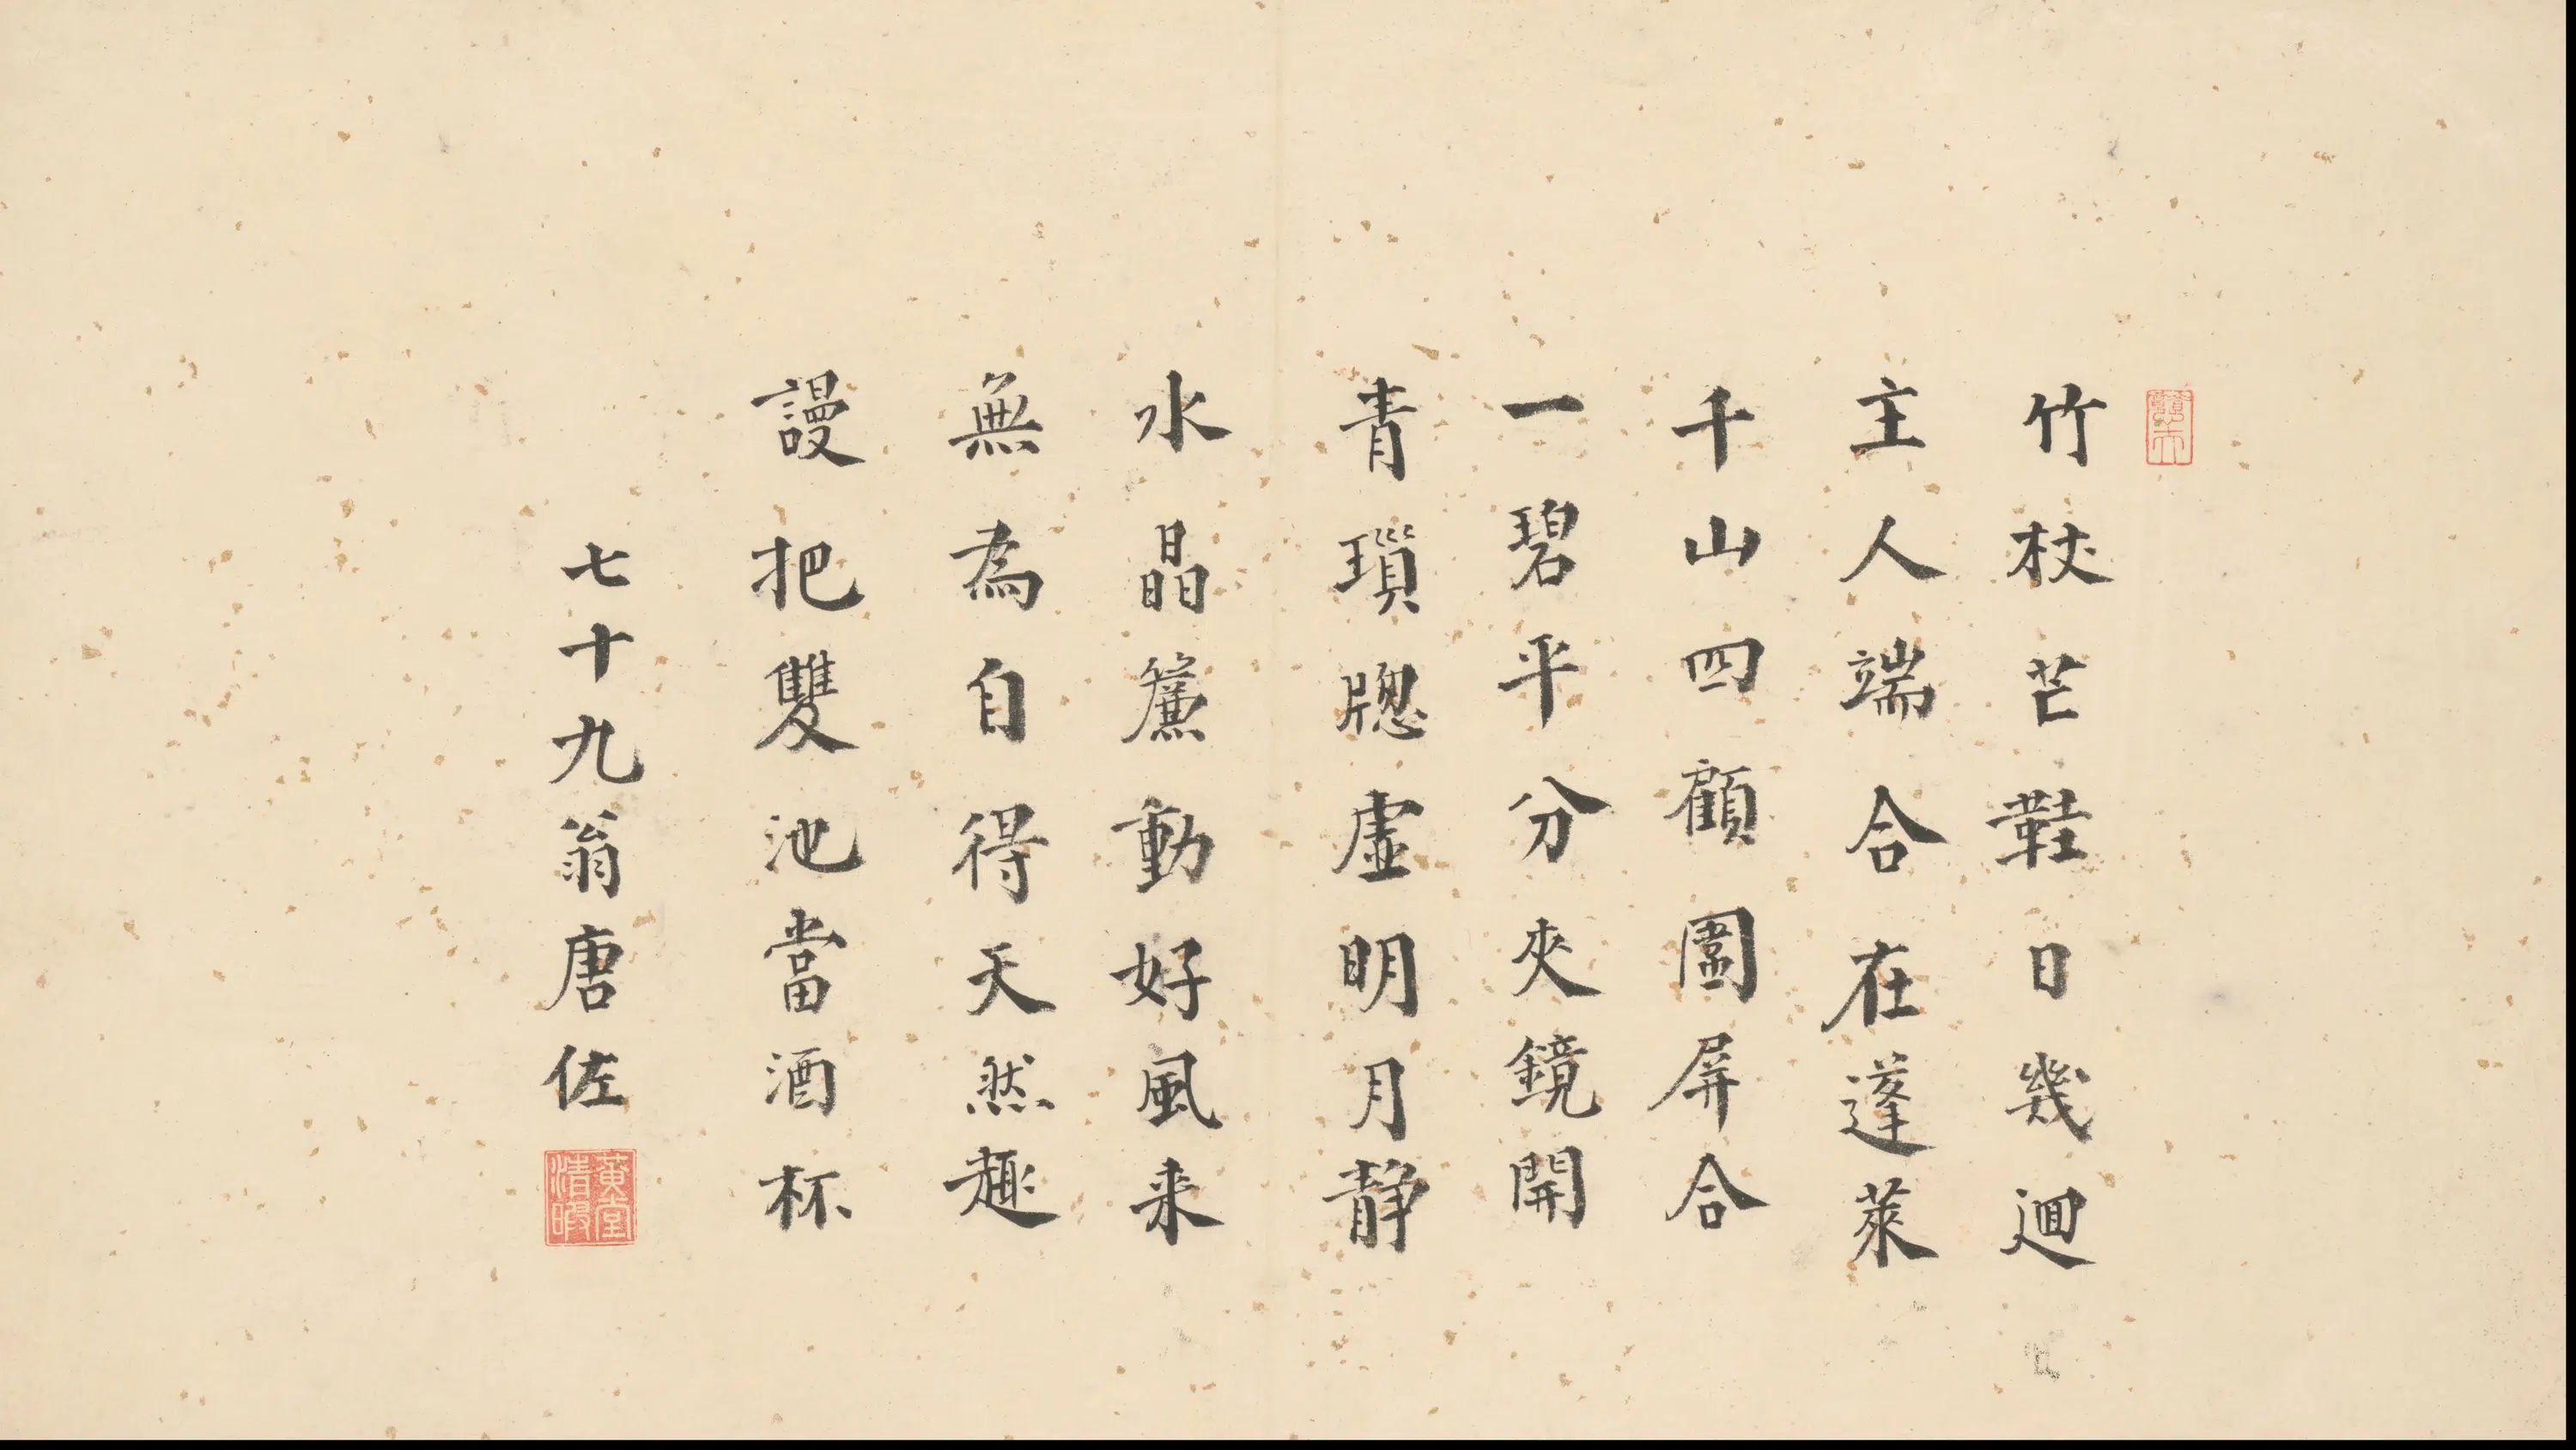 竹杖芒鞋日幾迴
主人端合在蓬萊
千山四顧圖屏合
一碧平分夾鏡開
青瑣牕虛明月静
水晶簾動好風来
無為自得天然趣
謾把雙池當酒杯
七十九翁唐佐
黄堂清暇